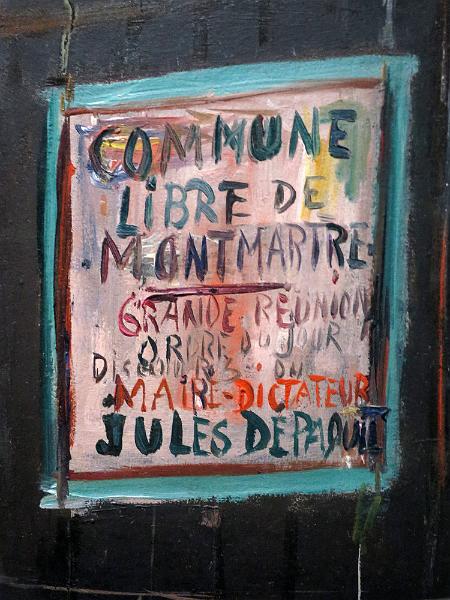 COMMUNE
LIBRE DE
MONTMARTRE
GRANDE REUNION
ORDRE DU JOUR
DISCOURS DU
MAIRE-DICTATEUR
JULES DEPAQUIT